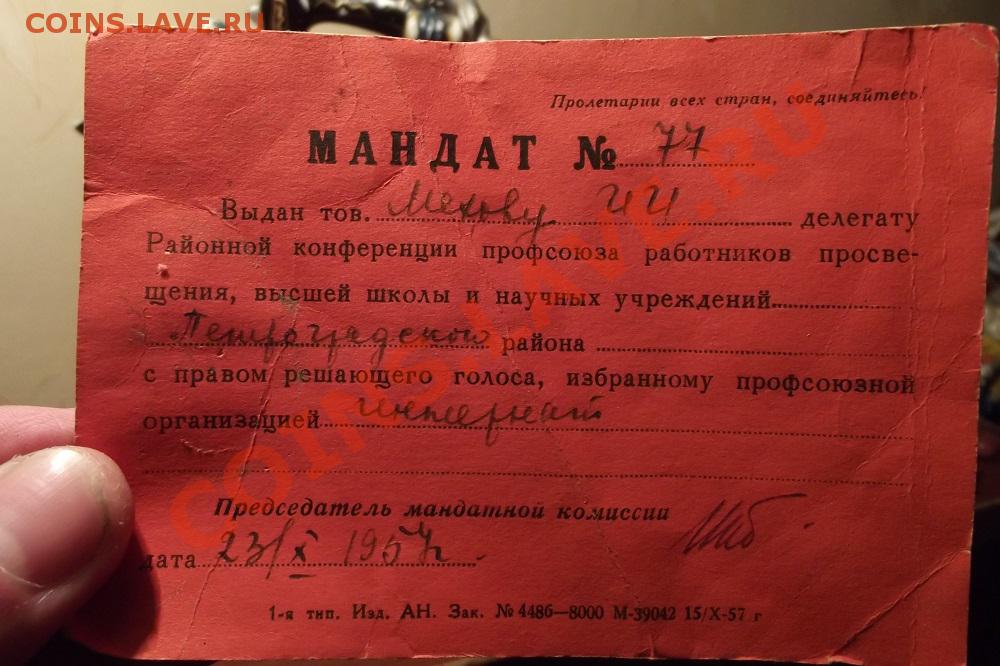 COINS.LAVE.RU
Пролетарии всех стран, соединяйтесь!
МАНДАТ № 77
Выдан тов. Мехову И И делегату
Районной конференции профсоюза работников просве-
щения, высшей школы и научных учреждений
Петроградского района
с правом решающего голоса, избранному профсоюзной
организацией интернат
Председатель мандатной комиссии
дата 23/X 1957г.
1-я тип. Изд. АН. Зак. № 4486—8000 М-39042 15/X-57 г
COINS.LAVE.RU